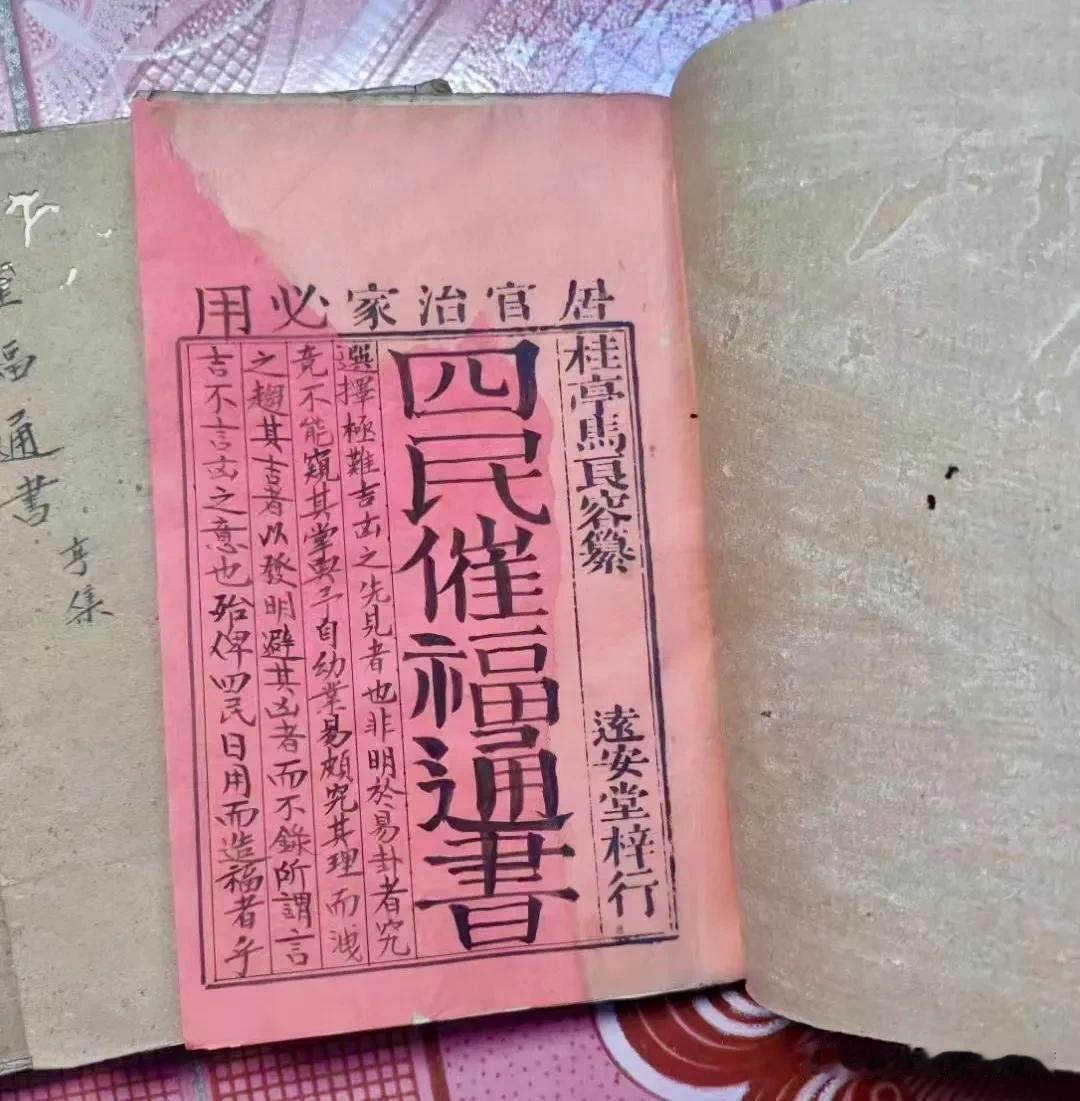 居官治家必用
桂亭馬良容纂
遠安堂梓行
四民催福通書
選擇極難吉凶之先見者也非明於易卦者究
竟不能窺其堂奧予自幼業易頗究其理而洩
之趨其吉者以發明避其凶者而不錄所謂言
吉不言凶之意也殆俾四民日用而造福者乎
福通書
亨集